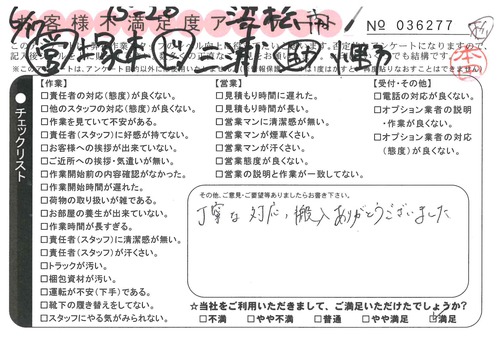 お客様不満足度アンケート
No 036277
浜松市
丁寧な対応、搬入ありがとうございました
チェックリスト
【作業】
□責任者の対応(態度)が良くない。
□他のスタッフの対応(態度)が良くない。
□作業を見ていて不安がある。
□責任者(スタッフ)に好感が持てない。
□お客様への挨拶が出来ていない。
□ご近所への挨拶・気遣いが無い。
□作業開始前の内容確認がなかった。
□作業開始時間が遅れた。
□荷物の取り扱いが雑である。
□お部屋の養生が出来ていない。
□作業時間が長すぎる。
□責任者(スタッフ)に清潔感が無い。
□責任者(スタッフ)が汗くさい。
□トラックが汚い。
□梱包資材が汚い。
□運転が不安(下手)である。
□靴下の履き替えをしてない。
□スタッフにやる気がみられない。
【営業】
□見積もり時間に遅れた。
□見積もり時間が長い。
□営業マンに清潔感が無い。
□営業マンが煙草くさい。
□営業マンが汗くさい。
□営業態度が良くない。
□営業の説明と作業が一致してない。
【受付・その他】
□電話の対応が良くない。
□オプション業者の説明
・作業が良くない。
□オプション業者の対応
(態度)が良くない。
その他、ご意見・ご要望等ありましたらお書き下さい。
☆当社をご利用いただきまして、ご満足いただけたでしょうか?
□不満 □やや不満 □普通 □やや満足 □満足